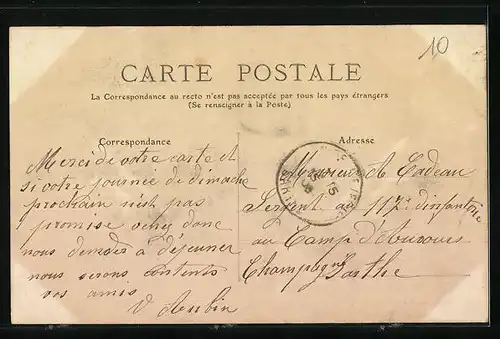 10
CARTE POSTALE
La Correspondance au recto n'est pas acceptée par tous les pays étrangers
(Se renseigner à la Poste)
Correspondance
Merci de votre carte et
si votre journée de dimache
prochain n'est pas
promise venez donc
nous demader à déjeuner
nous serons contents
vos amis
V Aubin
Adresse
Monsieur de Cadeau
Sergent au 117e d'infanterie
au Camp d'Auvours
Champagné Sarthe